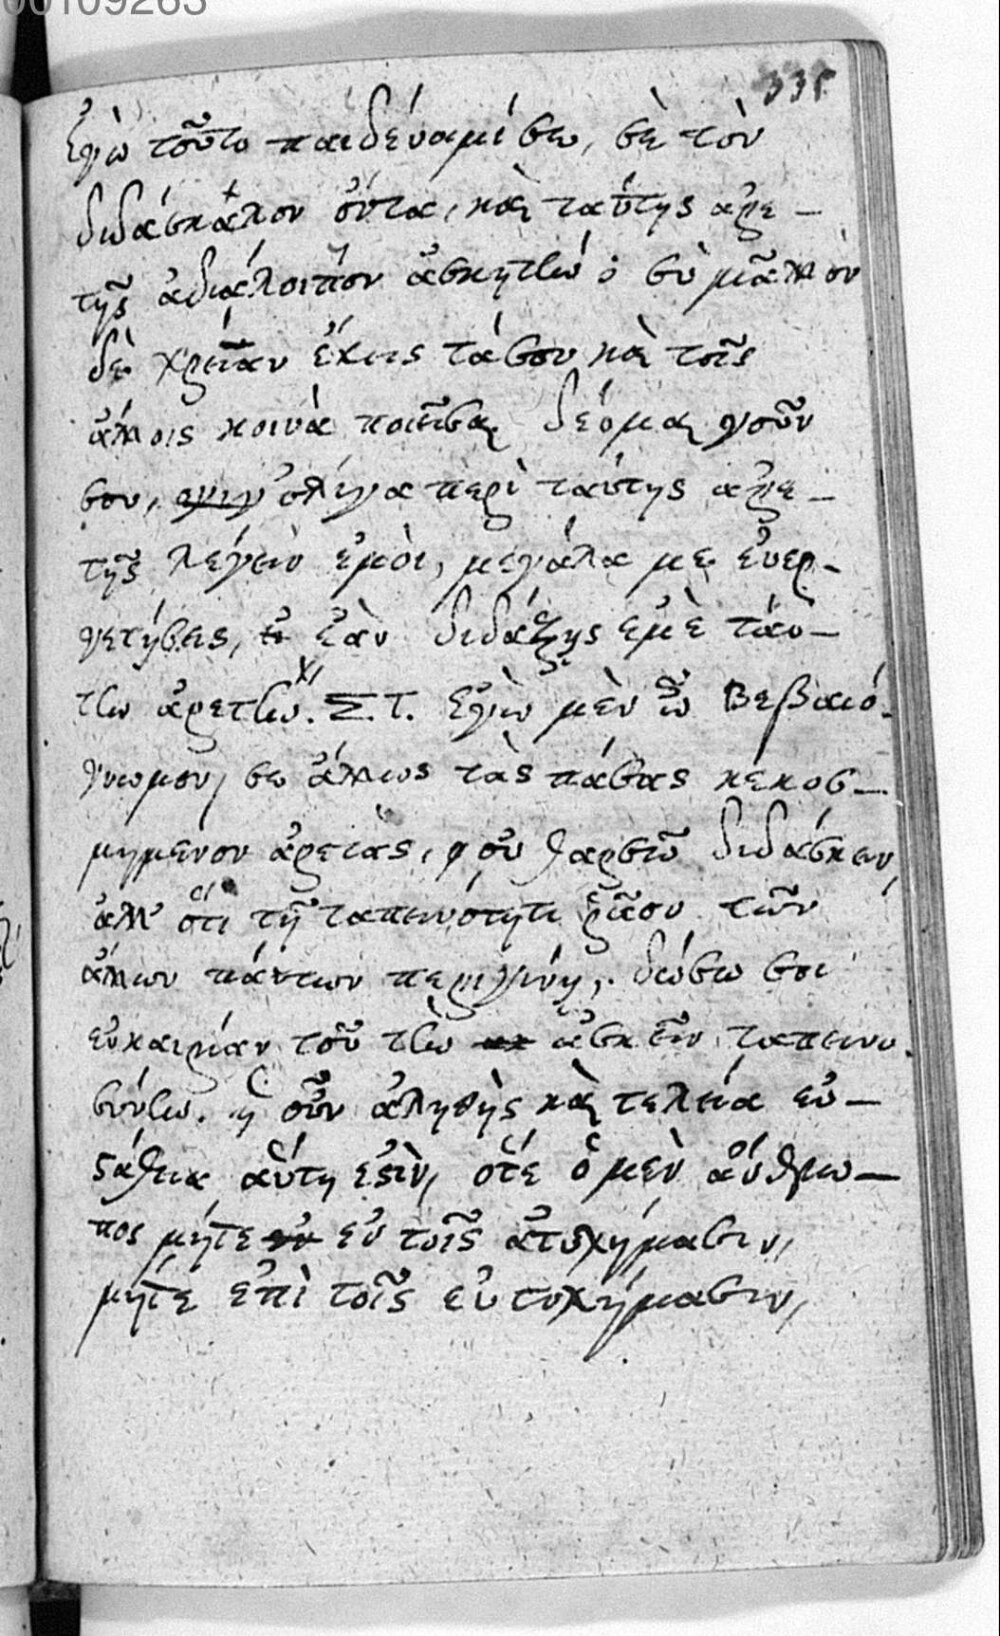 00109263
335
ἐγὼ τοῦτο παιδεύαμί σω, σὲ τὸν
διδάσκαλον ὄντα, καὶ ταύτης αρε-
τῆς ἀδιάλοιπον ἀσκητὼ ὁ σὺ μᾶλλον
δὲ χρείαν ἔχεις τάσου καὶ τοῖς
ἄλλοις κοινὰ ποιεῖσαι δέομαι γοῦν
σου, ὀλίγα περὶ ταύτης αρε-
τῆς λέγειν ἐμὸι, μεγάλα με ἐυερ-
γετήσεις, ἐὰν διδάξης ἐμὲ τάυ-
τω ἀρετω. Σ.Τ. Ἐγὼ μὲν Βεβαιό-
γνωμον, σω ἄλλως τὰς πάσας κεκοσ-
μημενον ἀρετὰς, οὐ θαρσῶ διδάσκειν
ἀλλ' ὅτι τῆ ταπεινότητι τῶν
ἄλλων πάντων περιγίνη, δώσω σοι
ευκαιρίαν τοῦ τὼ ἀσκεῖν ταπεινο-
σύνω. ἡ οὖν ἀληθὴς καὶ τελεία εὐ-
στάθεια αὕτη ἐστὶν, ὅτε ὁ μὲν ἄνθρω-
πος μήτε ἐν τοῖς ἀτυχήμασιν,
μήτε ἐπὶ τοῖς εὐτυχήμασιν,